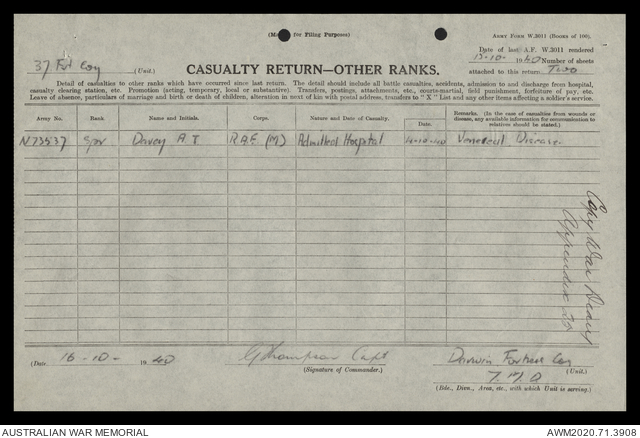 (M for Filing Purposes)
ARMY FORM W.3011 (Books of 100).
37 Fort Coy (Unit.)
Date of last A.F. W.3011 rendered
-10- 1940 Number of sheets
attached to this return Two
CASUALTY RETURN—OTHER RANKS.
Detail of casualties to other ranks which have occurred since last return. The detail should include all battle casualties, accidents, admission to and discharge from hospital,
casualty clearing station, etc. Promotion (acting, temporary, local or substantive). Transfers, postings, attachments, etc., courts-martial, field punishment, forfeiture of pay, etc.
Leave of absence, particulars of marriage and birth or death of children, alteration in next of kin with postal address, transfers to "X" List and any other items affecting a soldier's service.
Army No. Rank Name and Initials. Corps. Nature and Date of Casualty. Date. Remarks. (In the case of casualties from wounds or
disease, any available information for communication to
relatives should be stated.)
N73537 Spr Davey A.T R.A.E (M) Admitted Hospital -10-40 Venereal Disease
Copy War Diary
Appendix 20
(Date 16-10- 1940 G Thompson Capt Darwin Fortress Coy
(Signature of Commander.) (Unit.)
7. M. D
(Bde., Divn., Area, etc., with which Unit is serving.)
AUSTRALIAN WAR MEMORIAL
AWM2020.71.3908